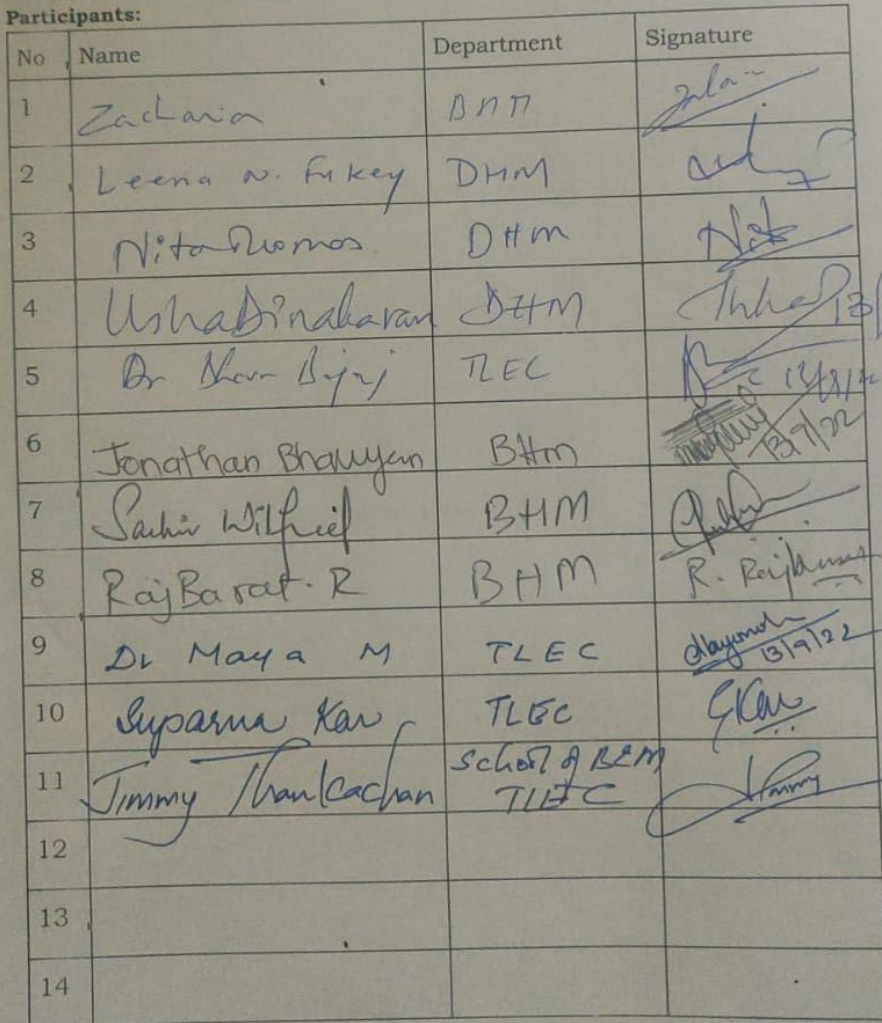 Participants:
No Name Department Signature
1 Zacharia
2 Leena N. Fukey DHM
3 Nita Thomas DHM
4 Usha Dinakaran DHM
5 Dr TLEC
6 Jonathan Bhauyan BHM 13/9/22
7 Sachin Wilfried BHM
8 Raj Barat. R BHM R.
9 Dr Maya M TLEC 13/9/22
10 Suparna Kar TLEC SKar
11 Jimmy Thankachan School of B&M TLEC
12
13
14